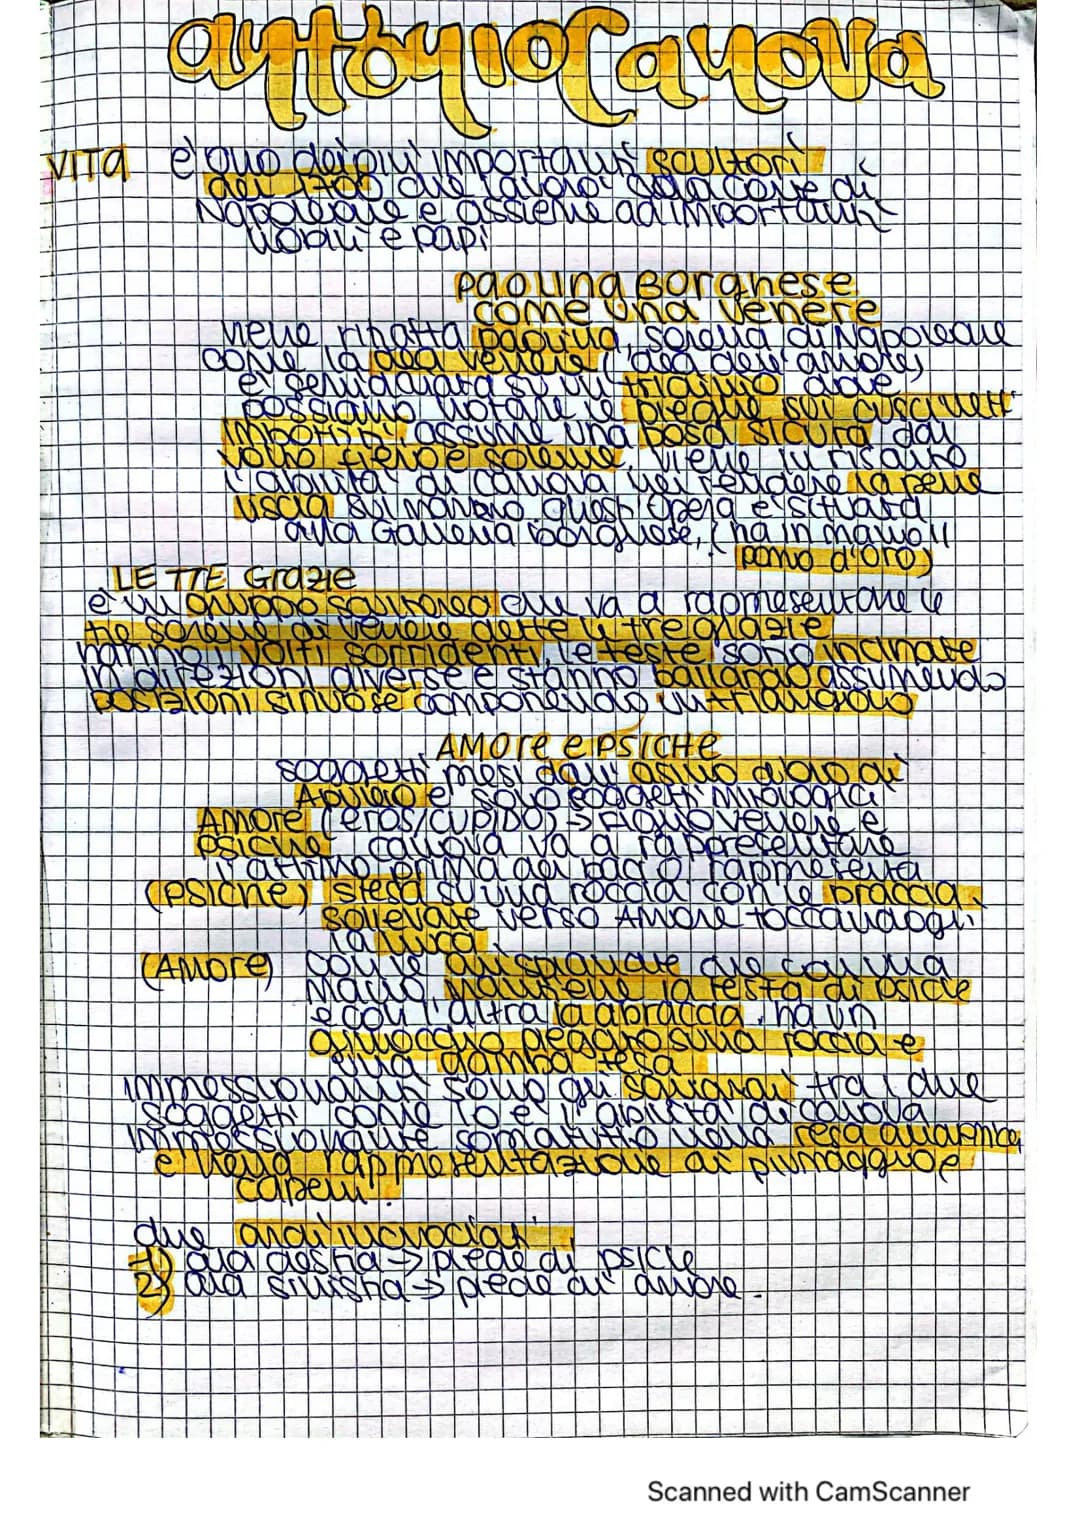 antonio Canova
VITA è uno dei più importanti scultori
del 1700 che lavorò alla corte di
Napoleone e assieme ad importanti
nobili e papi
PAOLINA BORGHESE
COME UNA VENERE
viene ritratta paolina, sorella di Napoleone
come la dea venere (dea dell'amore)
è semidraiata su un triclinio dove
possiamo notare le pieghe sui cuscinetti
imbottiti, assume una posa sicura dal
volto fiero e solenne. viene
l'abilità di canova nel rendere la pelle
liscia sul marmo. quest'opera è situata
alla Galleria borghese, (ha in mano il
pomo d'oro)
LE TTE Grazie
è un gruppo scultoreo che va a rappresentare le
tre sorelle di venere dette le tre grazie
hanno i volti sorridenti, le teste sono inclinate
in direzioni diverse e stanno ballando assumendo
posizioni sinuose componendo un triangolo
AMORE e PSICHE
soggetti presi dall' asino d'oro di
Apuleio e sono soggetti mitologici
AMORE (EROS/CUPIDO) → figlio venere e
psiche canova va a rappresentare
l'attimo prima del bacio rappresenta
(PSICHE) stesa su una roccia con le braccia
sollevate verso AMORE toccandogli
la nuca.
(AMORE) con le ali spiegate che con una
mano mantiene la testa di psiche
e con l'altra la abbraccia. ha un
ginocchio piegato sulla roccia e
una gamba tesa
immessionanti sono gli sguardi tra i due
soggetti come lo è l'abilità di canova
immessionante sopratutto nella resa anatomica
e nella rappresentazione di piumaggio e
capelli.
due archi incrociati:
1) ala destra → piede di psiche
2) ala sinistra → piede di amore.
Scanned with CamScanner